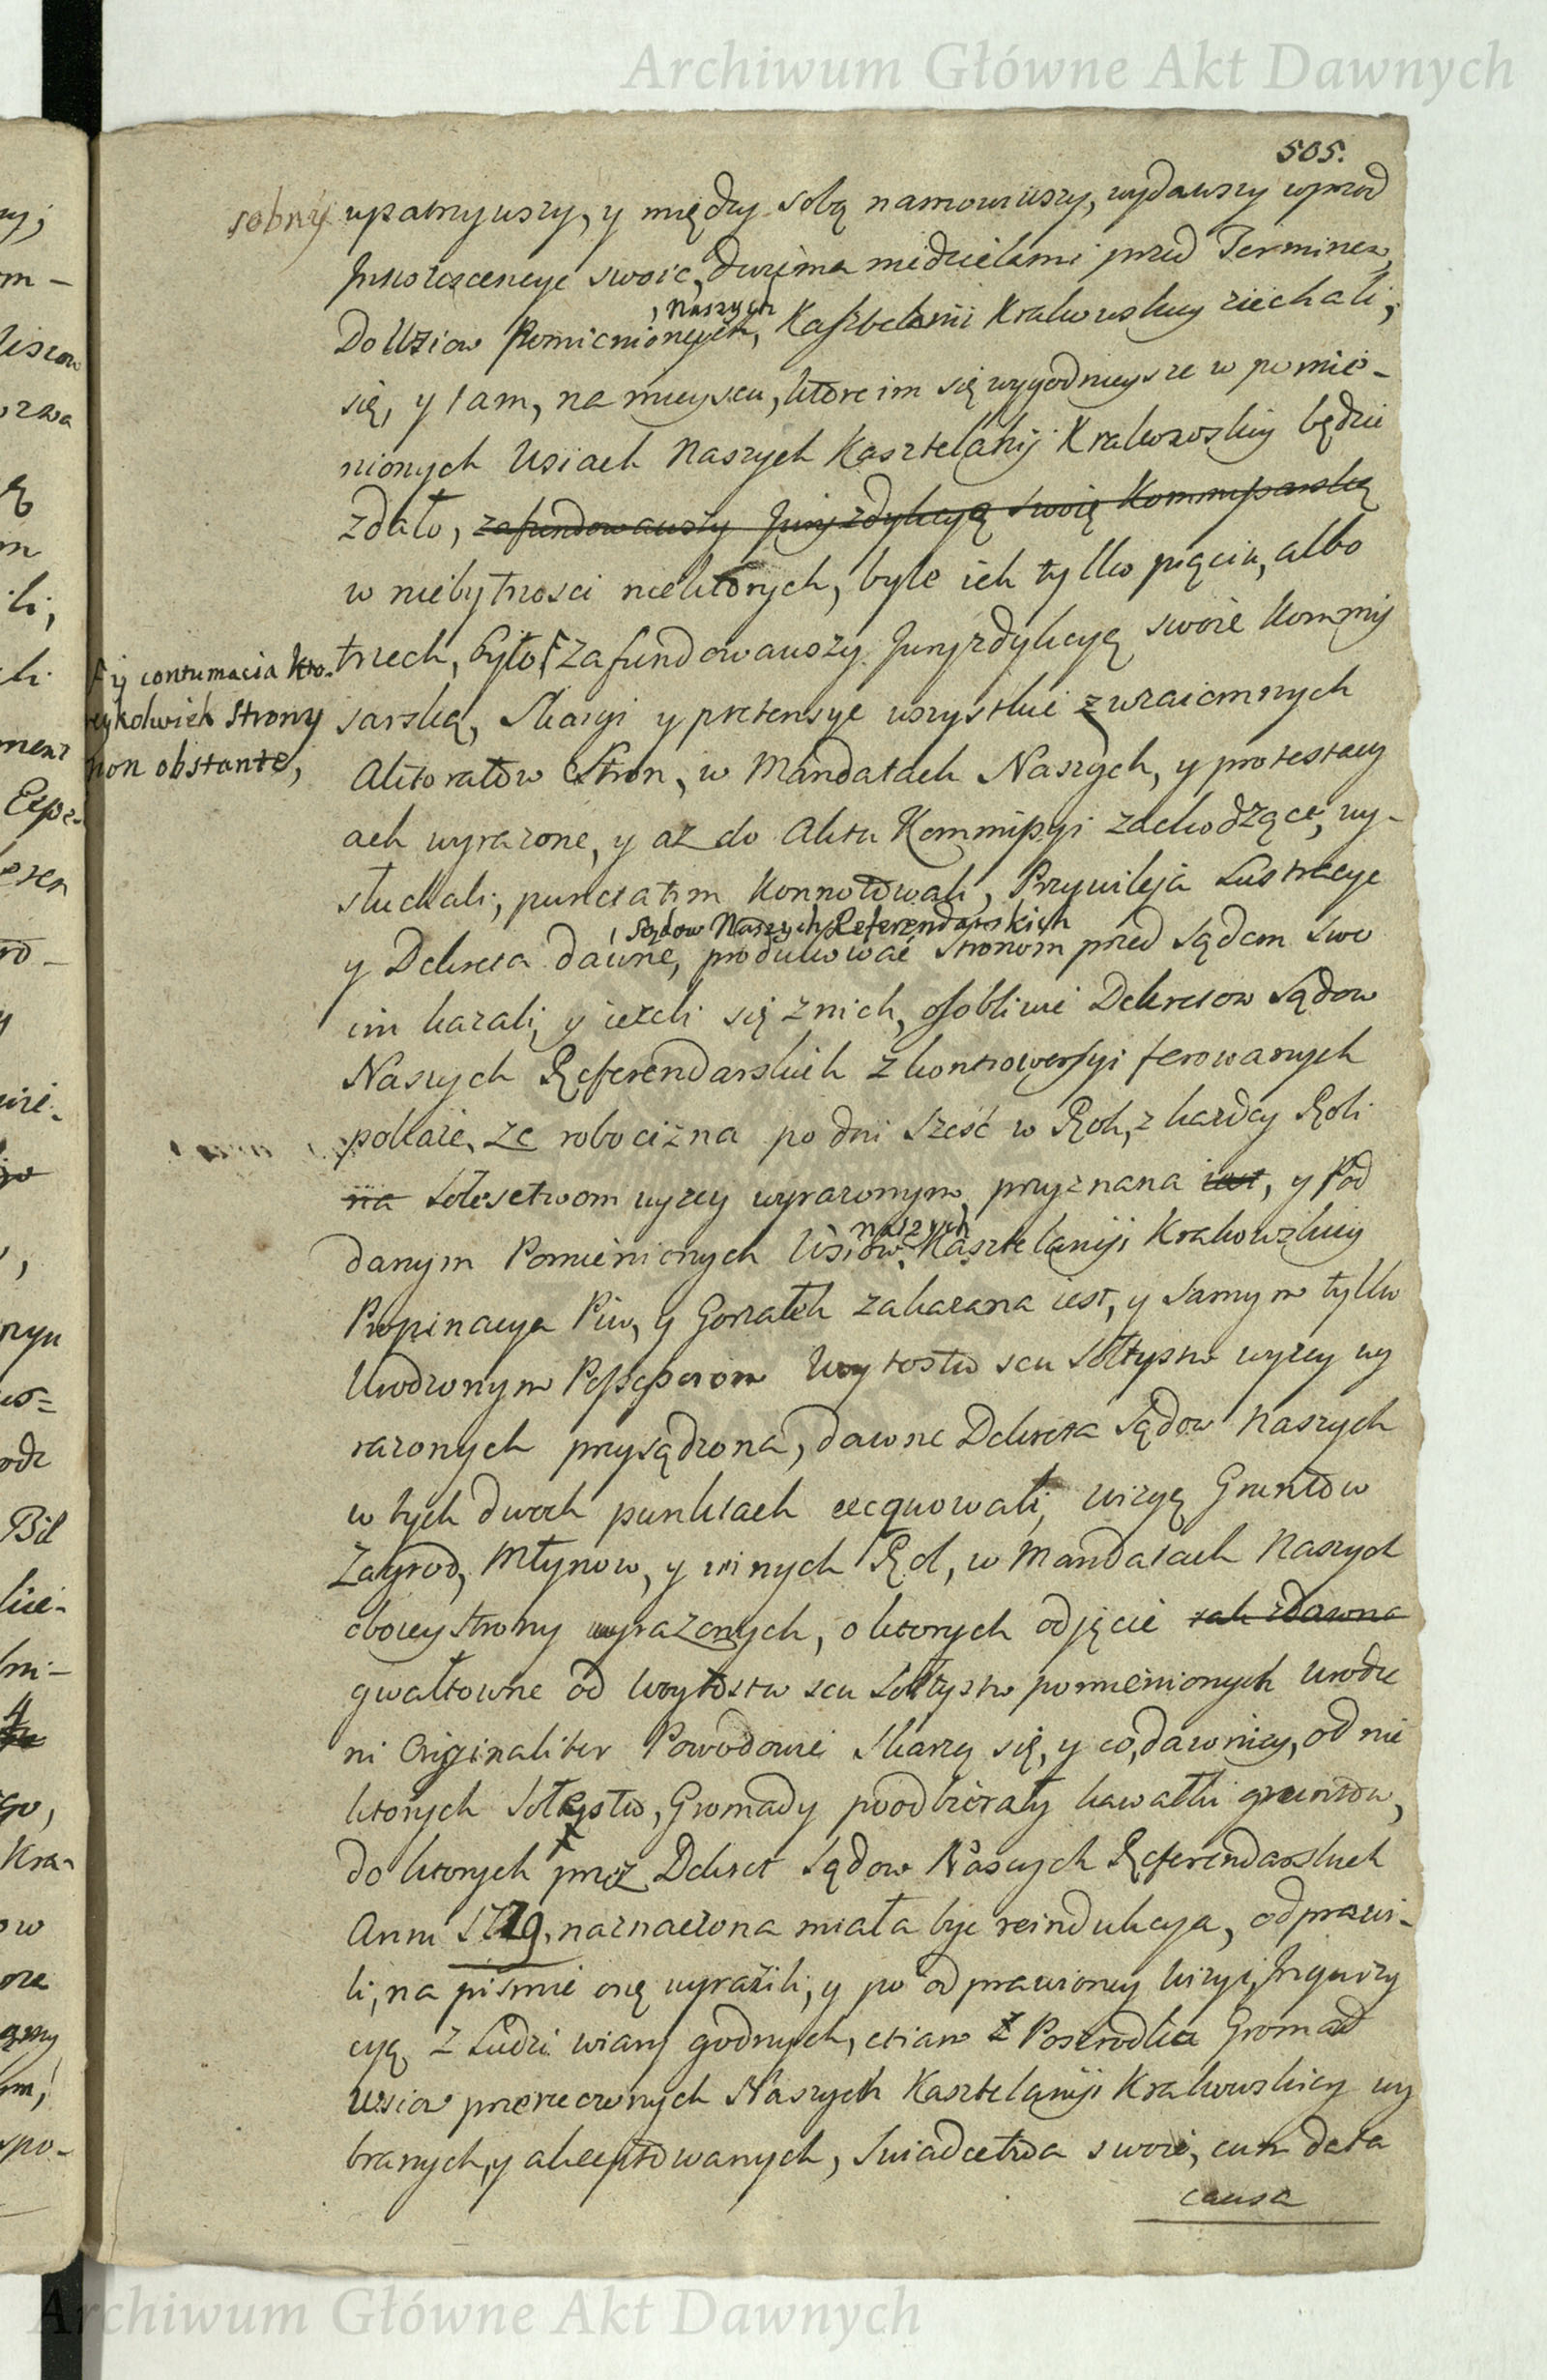 Archiwum Główne Akt Dawnych
505.
sobny upatrzywszy, y między sobą namowiwszy, wydawszy wprzod
Innotescencye swoie, dwiema niedzielami przed Terminem,
, Naszych
Do Wsiow Pomienionych, Kasztelanii Krakowskiey ziechali,
się, y tam, na mieyscu, ktore im się wygodnieysze w pomie-
nionych Wsiach Naszych Kasztelanij Krakowskiey będzie
zdało, zafundowawszy Juryzdykcyą swoię Kommissarską
w niebytnosci niektorych, byle ich tylko pięciu, albo
trzech, było, zafundowawszy Juryzdykcyę swoie Kommis
F y contumacia kto-
reykolwiek strony
non obstante,
sarską, Skargi y pretensye wszystkie z wzaiemnych
Aktoratow Stron, w Mandatach Naszych, y protestacy
ach wyrazone, y az do Aktu Kommissyi zachodzące, wy-
słuchali, punctatim konnotowali, Przywileja Lustracye
, Sądow Naszych Referendarskich
y Dekreta dawne, produkowac stronom przed Sądem swo
im kazali, y iezeli się z nich, osobliwie Dekretow Sądow
Naszych Referendarskich z kontrowersyi ferowanych
pokaże, ze robocizna po dni sześć w Rok, z kazdey Roli
na Sołtestwom wyzey wyrazonym, przyznana iest, y Pod
naszych
danym Pomienionych Wsiow, Kasztelaniji Krakowskiey
Propinacya Piw, y Gorzałek zakazana iest, y samym tylko
Urodzonym Possessorom Woytostw seu Sołtystw wyzey wy
razonych przysądzona, dawne Dekreta Sądow Naszych
w tych dwoch punktach exequowali, wizyę Gruntow
Zagrod, Młynow, y innych Rol, w Mandatach Naszych
oboiey strony wyrażonych, o ktorych odjęcie tak zdawna
gwałtowne od Woytostw seu Sołtystw pomienionych Urodze
ni Originaliter Powodowie skarzą się, y co, dawniey, od nie
ktorych Sołtystw, Gromady poodbierały kawałki gruntow,
do ktorych przez Dekret Sądow Naszych Referendarskich
Anni 1729, naznaczona miała byc reindukcya, odprawi-
li, na piśmie onę wyrazili, y po odprawioney wizyi, Inquizy
cyą z Ludzi wiary godnych, etiam z Poszrodka Gromad
Wsiow przerzeczonych Naszych Kasztelaniji Krakowskiey wy
branych, y akceptowanych, swiadectwa swoie, cum data
causa
Archiwum Główne Akt Dawnych